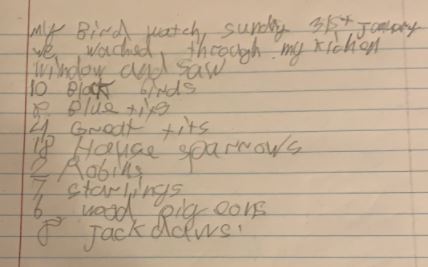 my Bird watch, sunday 31st January
we wached through my kichen
window and saw
10 Black birds
Blue tits
4 Great tits
18 House sparrows
2 Robins
7 starlings
6 wood pigeons
8 jackdaws.